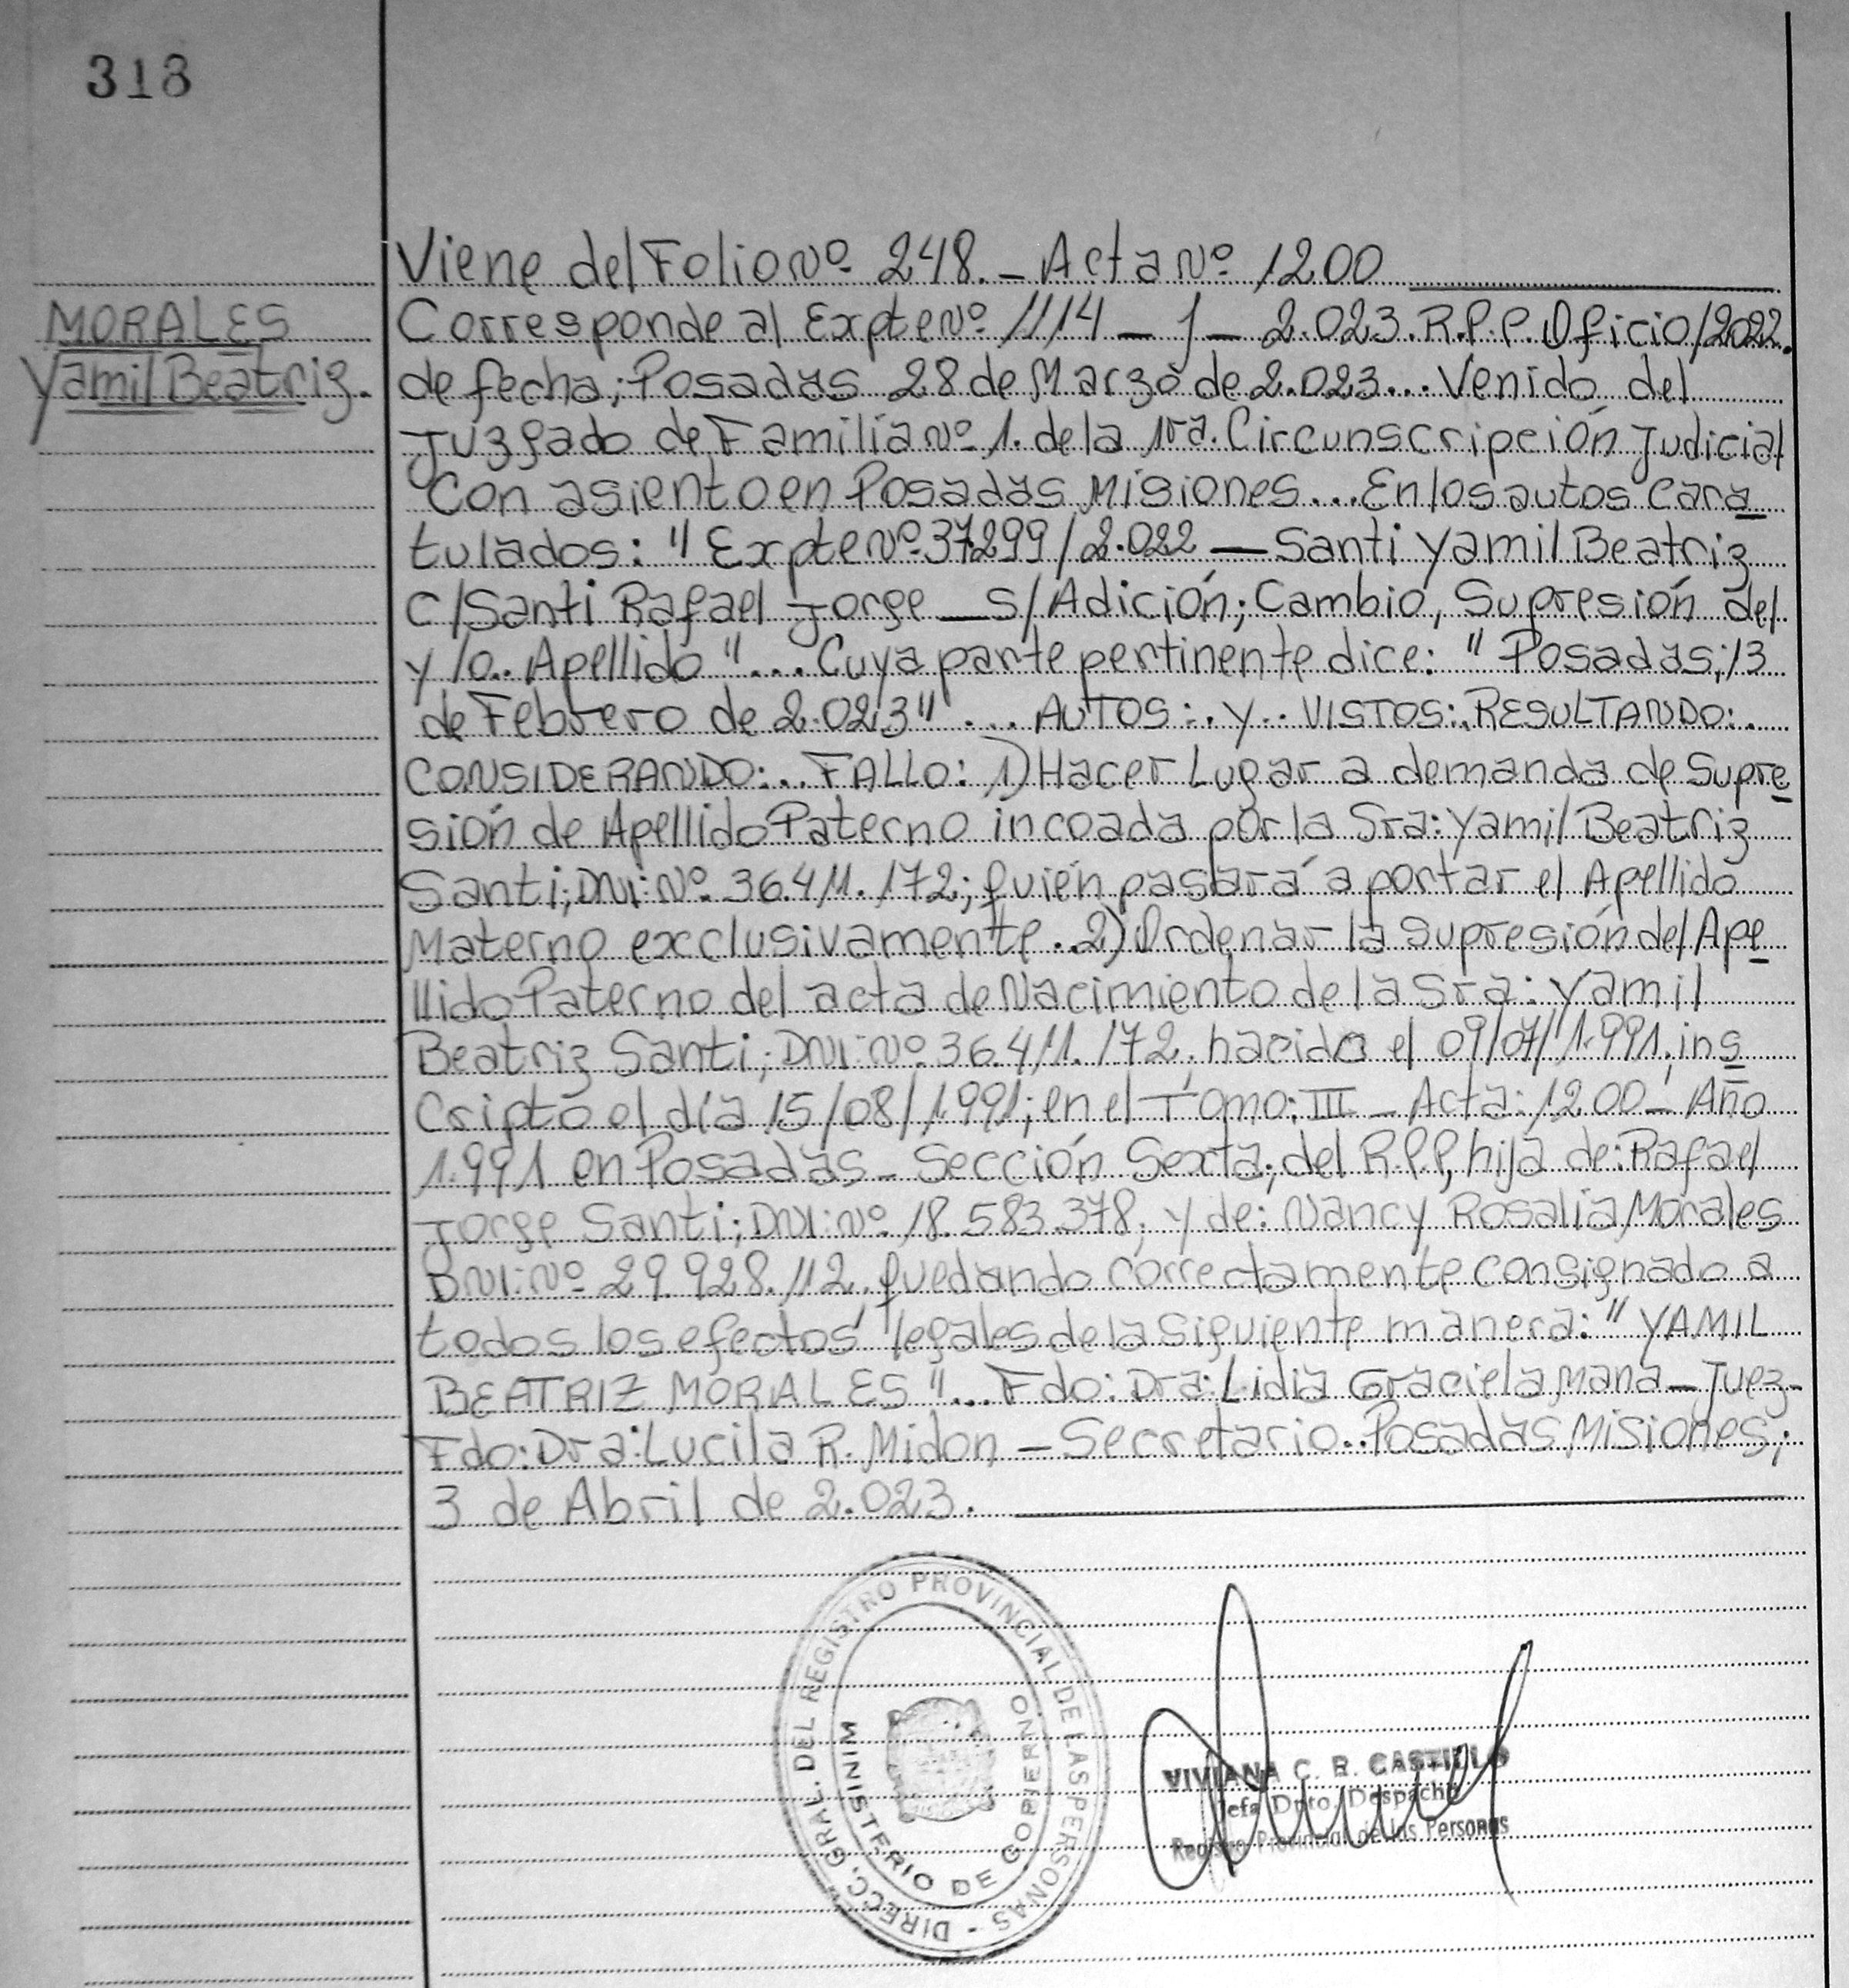 318
MORALES
Yamil Beatriz.
Viene del Folio Nº 248. - Acta Nº 1200
Corresponde al Expte Nº 1114 - J - 2.023. R.P.P. Oficio/2022.
de fecha; Posadas 28 de Marzo de 2.023... Venido del
Juzgado de Familia Nº 1. de la 1ra. Circunscripción Judicial
Con asiento en Posadas Misiones... En los autos Cara
tulados: "Expte Nº 37.299/2.022 - Santi Yamil Beatriz
C/Santi Rafael Jorge - S/Adición; Cambio, Supresión del
y/o.. Apellido"... Cuya parte pertinente dice: "Posadas; 13
de Febrero de 2.023"... AUTOS:. y.. VISTOS:. RESULTANDO:.
CONSIDERANDO:.. FALLO: 1) Hacer Lugar a demanda de Supre
sión de Apellido Paterno incoada por la Sra: Yamil Beatriz
Santi; DNI: Nº 36.411.172; quién pasará a portar el Apellido
Materno exclusivamente.. 2) Ordenar la supresión del Ape
llido Paterno del acta de Nacimiento de la Sra: Yamil
Beatriz Santi; DNI: Nº 36.411.172, nacida el 09/07/1.991, ins
cripto el día 15/08/1.991; en el Tomo: III - Acta: 1200 - Año
1.991 en Posadas - Sección Sexta; del R.P.P, hija de: Rafael
Jorge Santi; DNI: Nº 18.583.378, y de: Nancy Rosalia Morales
DNI: Nº 29.928.112. quedando correctamente consignado a
todos los efectos legales de la siguiente manera: "YAMIL
BEATRIZ MORALES"... Fdo: Dra: Lidia Graciela Mana - Juez -
Fdo: Dra: Lucila R. Midon - Secretario.. Posadas Misiones;
3 de Abril de 2.023.
DIRECC. GRAL. DEL REGISTRO PROVINCIAL DE LAS PERSONAS -
MINISTERIO DE GOBIERNO
VIVIANA C. R. CASTILLO
Jefa Dpto. Despacho
Registro Provincial de las Personas